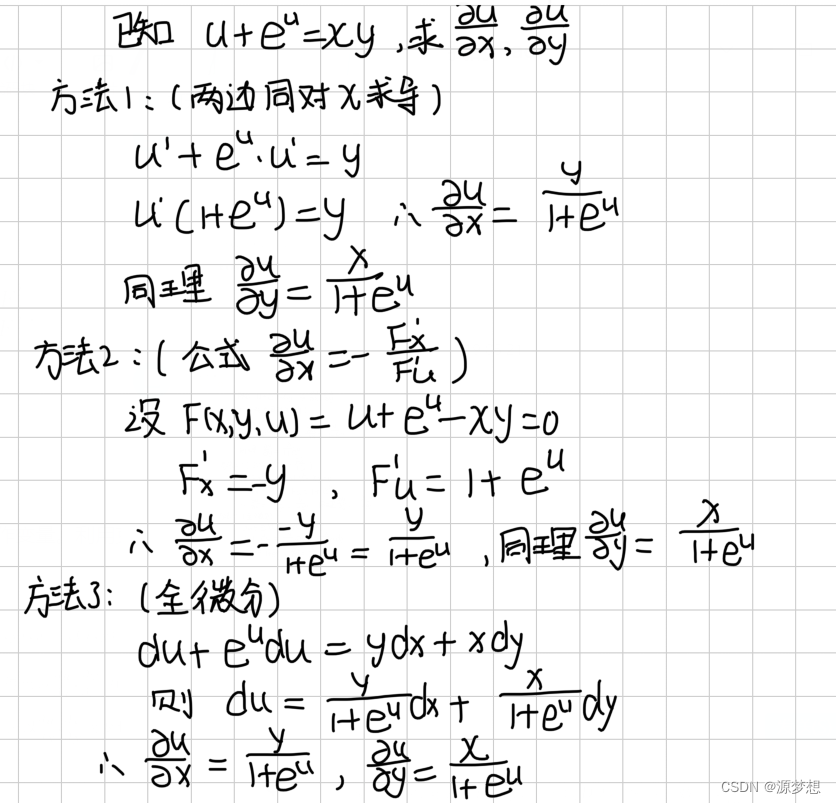 已知 u+e^u=xy ,求 ∂u/∂x, ∂u/∂y
方法1:(两边同对x求导)
u'+e^u·u'=y
u'(1+e^u)=y ∴ ∂u/∂x = y/(1+e^u)
同理 ∂u/∂y = x/(1+e^u)
方法2:(公式 ∂u/∂x = - F'x/F'u )
设 F(x,y,u) = u+e^u-xy=0
F'x=-y , F'u = 1+ e^u
∴ ∂u/∂x = - (-y)/(1+e^u) = y/(1+e^u) ,同理 ∂u/∂y = x/(1+e^u)
方法3:(全微分)
du+ e^u du = ydx+xdy
则 du = y/(1+e^u) dx+ x/(1+e^u) dy
∴ ∂u/∂x = y/(1+e^u) , ∂u/∂y = x/(1+e^u)
CSDN @源梦想